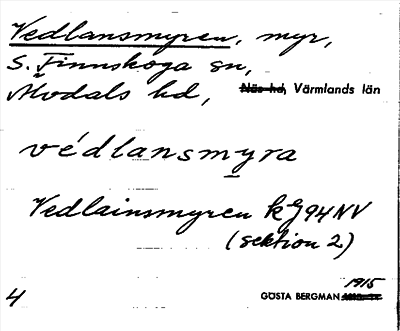 Vedlansmyren, myr,
S. Finnskoga sn,
Älvdals hd, Näs hd, Värmlands län
védlansmyra
Vedlainsmyren keg 94 NV
(sektion 2)
1915
4 GÖSTA BERGMAN